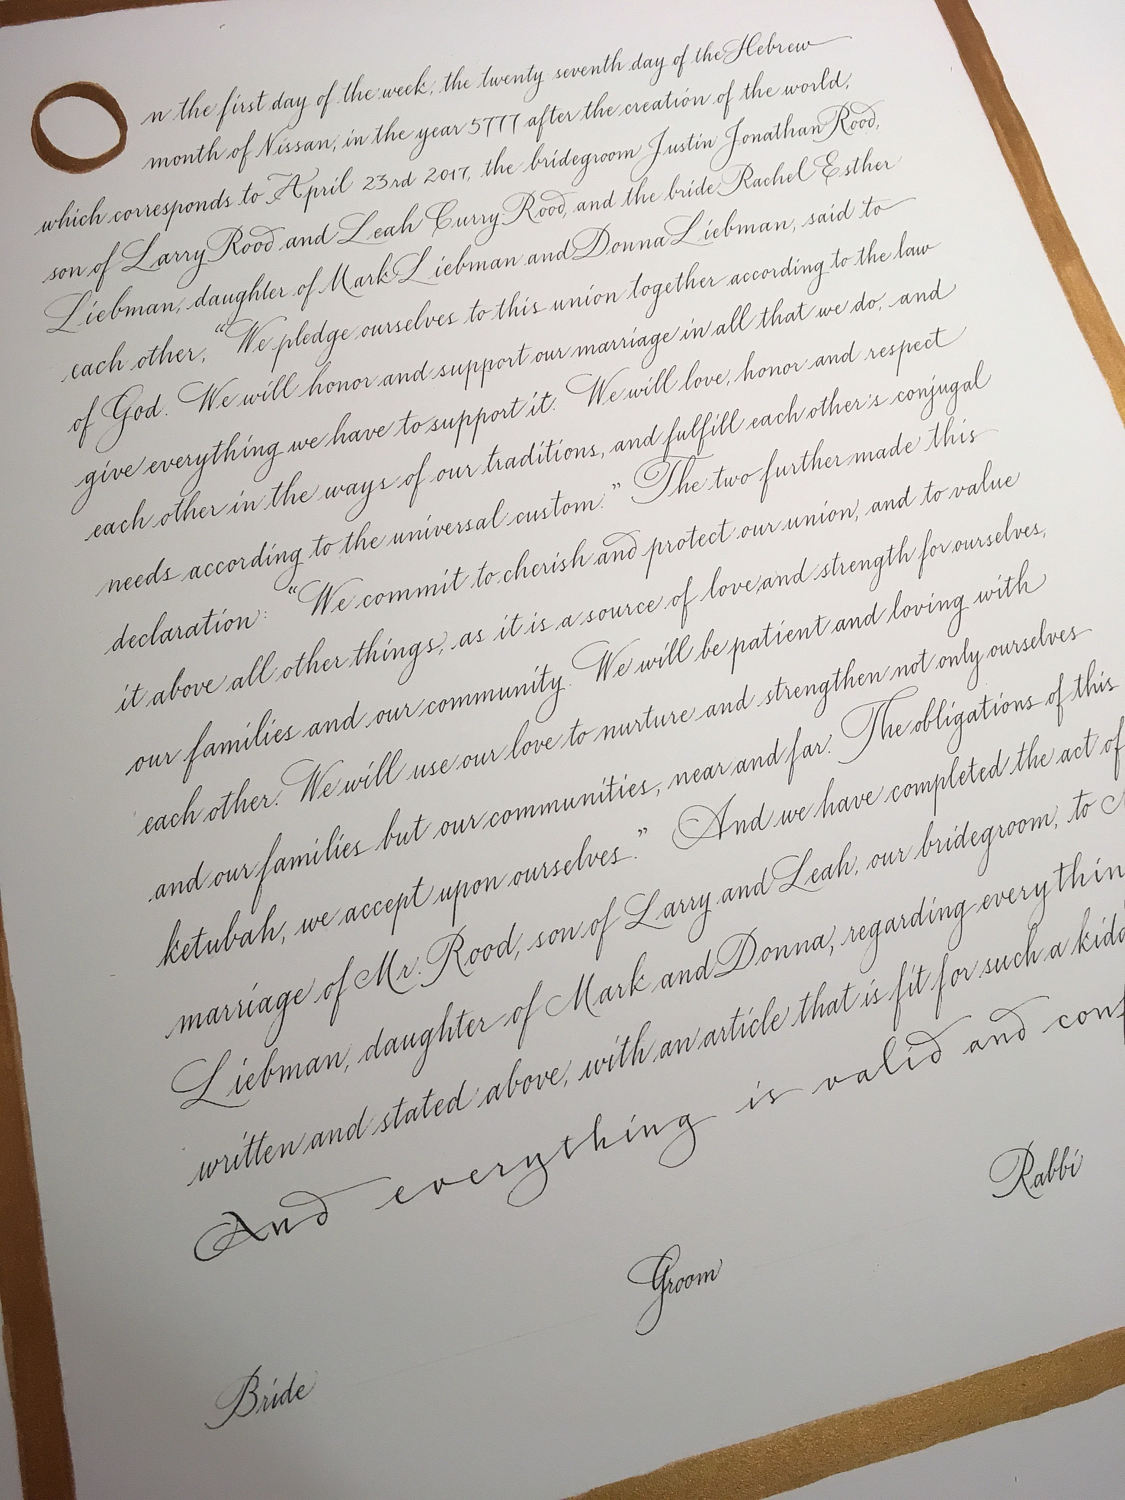 On the first day of the week, the twenty seventh day of the Hebrew
month of Nissan, in the year 5777 after the creation of the world,
which corresponds to April 23rd 2017, the bridegroom Justin Jonathan Rood,
son of Larry Rood and Leah Curry Rood, and the bride Rachel Esther
Liebman, daughter of Mark Liebman and Donna Liebman, said to
each other, “We pledge ourselves to this union together according to the law
of God. We will honor and support our marriage in all that we do, and
give everything we have to support it. We will love, honor and respect
each other in the ways of our traditions, and fulfill each other's conjugal
needs according to the universal custom.” The two further made this
declaration: “We commit to cherish and protect our union, and to value
it above all other things, as it is a source of love and strength for ourselves,
our families and our community. We will be patient and loving with
each other. We will use our love to nurture and strengthen not only ourselves
and our families but our communities, near and far. The obligations of this
ketubah, we accept upon ourselves.” And we have completed the act of
marriage of Mr. Rood, son of Larry and Leah, our bridegroom, to
Liebman, daughter of Mark and Donna, regarding everythin
written and stated above, with an article that is fit for such a kidd
And everything is valid and conf
Rabbi
Groom
Bride